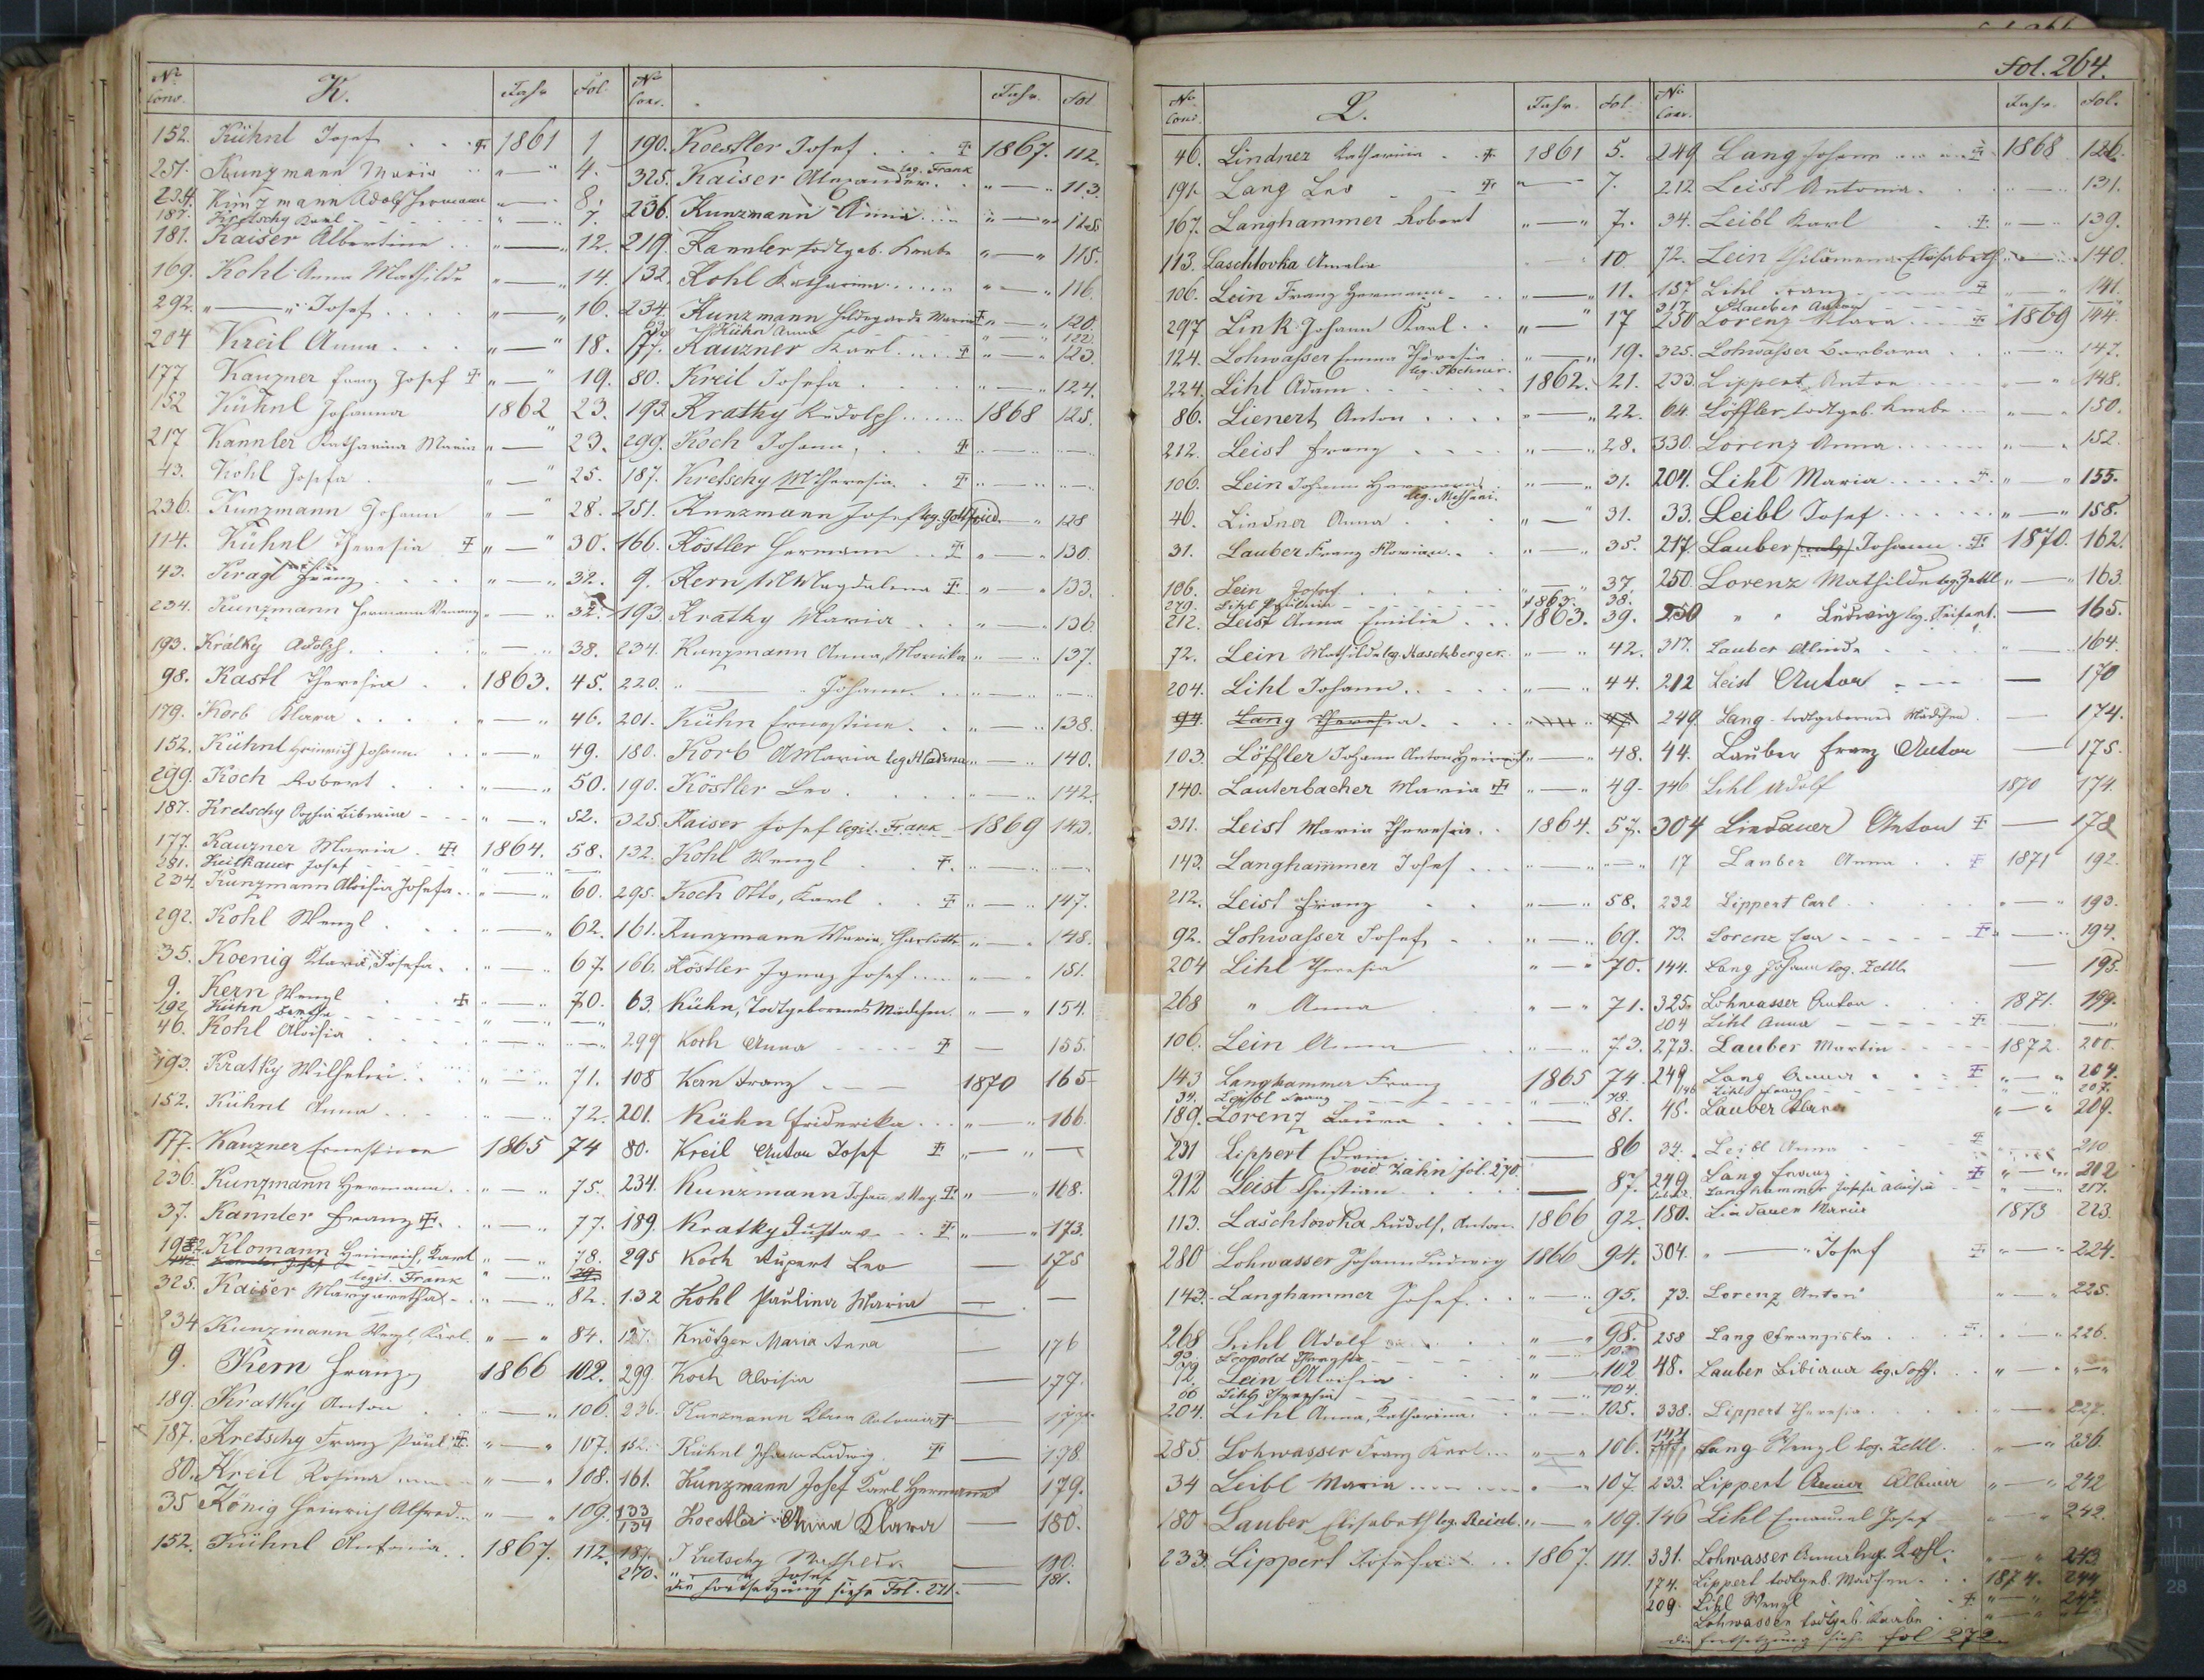 No Cons. K. Jahr Fol.
152. Kühnl Josef . . † 1861 1
251. Kunzmann Maria " — " 4.
234. Kunzmann Adolf Hermann " — " 8.
187. Kretschy Karl " — " 7.
181. Kaiser Albertine . . " — " 12.
169. Kohl Anna Mathilde " — " 14.
292. " — " Josef . . . . " — " 16.
204 Kreil Anna . . . " — " 18.
177 Kauzner Franz Josef † " — " 19.
152 Kühnl Johanna 1862 23.
217 Kannler Katharina Maria " — " 23.
43. Kohl Josefa . " — " 25.
236. Kunzmann Johann " — " 28.
114. Kühnl Theresia † " — " 30.
43. Kragl Franz . . . . " — " 32.
234. Kunzmann Hermann " — " 32.
193. Kratky Adolph. . . " — " 38.
98. Kastl Theresia . . 1863. 45.
179. Korb Klara . . . . " — " 46.
152. Kühnl Heinrich Johann . . " — " 49.
299. Koch Robert . . . " — " 50.
187. Kretschy Sophia Bibiana - - " — " 52.
177. Kauzner Maria . † 1864. 58.
281. Josef - - - " — "
234. Kunzmann Aloisia Josefa . . " — " 60.
292. Kohl Wenzl . . . " — " 62.
35. Koenig Klara, Josefa . " — " 67.
9. Kern Wenzl . . † " — " 70.
192 Kühn - - - " — "
46. Kohl Aloisia . . . . " — "
193. Kratky Wilhelm . . . " — " 71.
152. Kühnl Anna . . . . " — " 72.
177. Kauzner Ernestine 1865 74
236. Kunzmann Hermann . " — " 75.
37. Kannler Franz †. . " — " 77.
Klomann Heinrich, Karl " — " 78.
325. Kaiser Margaretha legit. Frank " — " 82.
234 Kunzmann Wenzl, Karl. " — " 84.
9. Kern Franz 1866 102.
189. Kratky Anton . . " — " 106.
187. Kretschy Franz Paul †. " — " 107.
80. Kreil Rosina " — " 108.
35 König Heinrich Alfred " — " 109.
152. Kühnl Antonia . . 1867. 112.
No Cons. Jahr. Fol.
190. Koestler Josef . . . † 1867. 112.
325. Kaiser Alexander leg. Frank " — " 113.
236. Kunzmann Anna . . . " — " 115
219. Kannler todtgeb. Knabe " — " 115.
132. Kohl Katharina . . . . . " — " 116
234. Kunzmann Hildegarde Maria † " — " 120.
Kühn Anna " — " 122.
177. Kauzner Karl . . . † " — " 123.
80. Kreil Josefa . . . " — " 124.
193. Kratky Rudolph . . . . . 1868 125.
299. Koch Johann, . . † " — "
187. Kretschy M Theresia . † " — "
251. Kunzmann Josef leg. Gottfried " 128
166. Köstler Hermann . . † " — " 130.
9. Kern M Magdalena † " — " 133.
193. Kratky Maria . . . " — " 136
234. Kunzmann Anna, Monika " — " 137.
220. " — " Johann . . . " — "
201. Kühn Ernestine . . . " — " 138.
180. Korb A Maria leg. Hladena " — " 140.
190. Köstler Leo . . . . " — " 142.
325. Kaiser Josef legit. Frank 1869 143.
132. Kohl Wenzl †. " — "
295. Koch Otto, Karl . . † " — " 147.
161. Kunzmann Maria, Charlotte " — " 148.
166. Köstler Ignaz Josef . . . . " — " 151.
63. Kühn, Todtgeborenes Mädchen. " — " 154.
299 Koch Anna - - - - † — 155.
108 Kern Franz - - - 1870 165
201. Kühn Friderika . . . " — " 166.
80. Kreil Anton Josef † " — " —
234. Kunzmann Johann †. " — " 168.
189. Kratky Gustav . . . † " — " 173.
295 Koch Rupert Leo — 175
132 Kohl Paulina Maria — . —
127. Knötgen Maria Anna — 176
299. Koch Aloisia — 177.
236. Kunzmann Klara Antonia † —
152. Kühnl Johann Ludwig. † — 178.
161. Kunzmann Josef Karl Hermann 179.
133/134 Koestler Anna Klara — 180.
187. Kretschy Mathilde — 180.
270. " — " Josef — 181.
die Fortsetzung siehe Fol. 271.
Fol. 264.
No Cons. L. Jahr. Fol.
46. Lindner Katharina . . † 1861 5.
191. Lang Leo - — † " — " 7.
167. Langhammer Robert " — " 7.
113. Laschtovka Amalia . - : 10
106. Lein Franz Hermann . . . " — " 11.
297 Link Johann Karl . . " — " 17
124. Lohwasser Emma Theresia . " — " 19.
224. Lihl Adam . . leg. . . 1862. 21.
86. Lienert Anton . . . . " — " 22.
212. Leist Franz . . . . " — " 28.
106. Lein Johann " — " 31.
46. Lindner Anna . . . . " — " 31.
31. Lauber Franz Florian . . " — " 35.
106. Lein Josef . . . . " — " 37.
279. Lihl Paulina - - - - 1863. 38.
212. Leist Anna Emilie . . . 1863. 39.
72. Lein Mathilde leg. Haschberger. " — " 42.
204. Lihl Johann . . . . " — " 44.
94. Lang Theresia . . .
103. Löffler Johann Anton Heinrich " — " 48.
140. Lauterbacher Maria † " — " 49.
311. Leist Maria Theresia . . 1864. 57.
143. Langhammer Josef . . . " — "
212. Leist Franz . . " — " 58.
92. Lohwasser Josef . . . " — " 69.
204 Lihl Theresia " - " 70.
268 " Anna " - " 71.
106. Lein Anna . . " — " 73.
143 Langhammer Franz 1865 74.
34. Leibl Franz - - - 78.
189. Lorenz Laura . . . — 81.
231 Lippert Edwin . . . — 86
vid Zahn fol. 270.
212 Leist Christian . . . — 87.
113. Laschtowka Rudolf, Anton. 1866 92.
280 Lohwasser Johann Ludwig 1866 94.
143. Langhammer Josef . . " — " 95.
268 Lihl Adolf . . . " — " 98.
Leopold
72. Lein Aloisia . . . " — " 102
66 Lihl Theresia - - - 104.
204. Lihl Anna, Katharina. . " — " 105.
285. Lohwasser Franz Karl . . . " — " 106.
34 Leibl Maria . . . . . " — " 107.
180 Lauber Elisabeth leg. Reinl. " — " 109.
233. Lippert Josefa . . . 1867. 111.
No Cons. Jahr. Fol.
249 Lang Johann . . . . . † 1868 126.
212 Leist Antonia . . . . . — 131.
34. Leibl Karl . †. " — " 139.
72. Lein Philomena Elisabeth " — " 140.
157 Lihl Franz - - - † " — " 141.
317. Lauber
250 Lorenz Klara . . . † 1869 144.
325. Lohwasser Barbara . . . . — 147.
233. Lippert Anton - - - " — " 148.
64. Löffler todtgeb. Knabe . . . " — " 150.
330. Lorenz Anna . . . . . " — " 152.
204. Lihl Maria . . . . . †. " — " 155.
33. Leibl Josef . . . . . " — " 158.
217. Lauber Johann . † 1870. 162.
250. Lorenz Mathilde leg. Zettl " — " 163.
250 " " Ludwig leg. Seifert. — 165.
317. Lauber Alinda . . . . " . . 164.
212 Leist Anton - - - — 170
249. Lang todtgebornes Mädchen. — 174.
44. Lauber Franz Anton — 175.
146 Lihl Adolf 1870 174.
304 Lindauer Anton † — 178
17 Lauber Anna . . † 1871 192.
232 Lippert Carl . . . . " — " 193.
73. Lorenz - - - - † " — " 194.
144. Lang Johann leg. Zettl. — 195.
325. Lohwasser Anton . . . 1871. 199.
204 Lihl Anna - - - - † — "
273. Lauber Martin . . . . 1872. 200.
249 Lang Anna . . . † " — " 204.
146 Lihl Franz - - - " — " 207.
45. Lauber Klara " — " 209.
34. Leibl Anna - - - † 210
249 Lang Franz . . . † " — " 212
Langhammer Josefa Aloisia - " — " 217.
180. Lindauer Maria 1873 223.
304. " — " Josef † " — " 224.
73. Lorenz Anton " — " 225.
258 Lang Franziska . . . †. . — " 226.
48. Lauber Bibiana leg. . . " — "
338. Lippert Theresia . . . . " — " 227.
Lang Wenzl leg. Zettl. " — " 236.
233. Lippert Anna Albina " — " 242
146 Lihl Emanuel Josef " — " 242.
331. Lohwasser Anna leg. " — " 243
174. Lippert todtgeb. Mädchen. . 1874. 244
209. Lihl Wenzl . . . † " — " 247.
Lohwasser todtgeb. Knabe . . " — "
die Fortsetzung siehe fol 272.